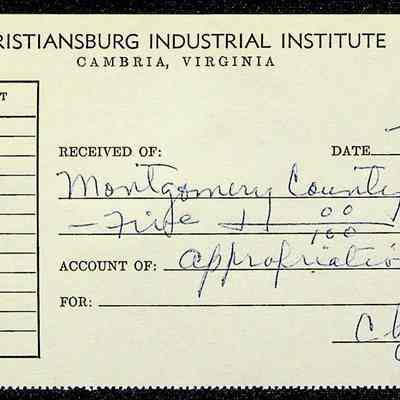 RISTIANSBURG INDUSTRIAL INSTITUTE
CAMBRIA, VIRGINIA
T
RECEIVED OF: DATE
Montgomery County
— Five + 00/100
ACCOUNT OF: appropriatio
FOR: